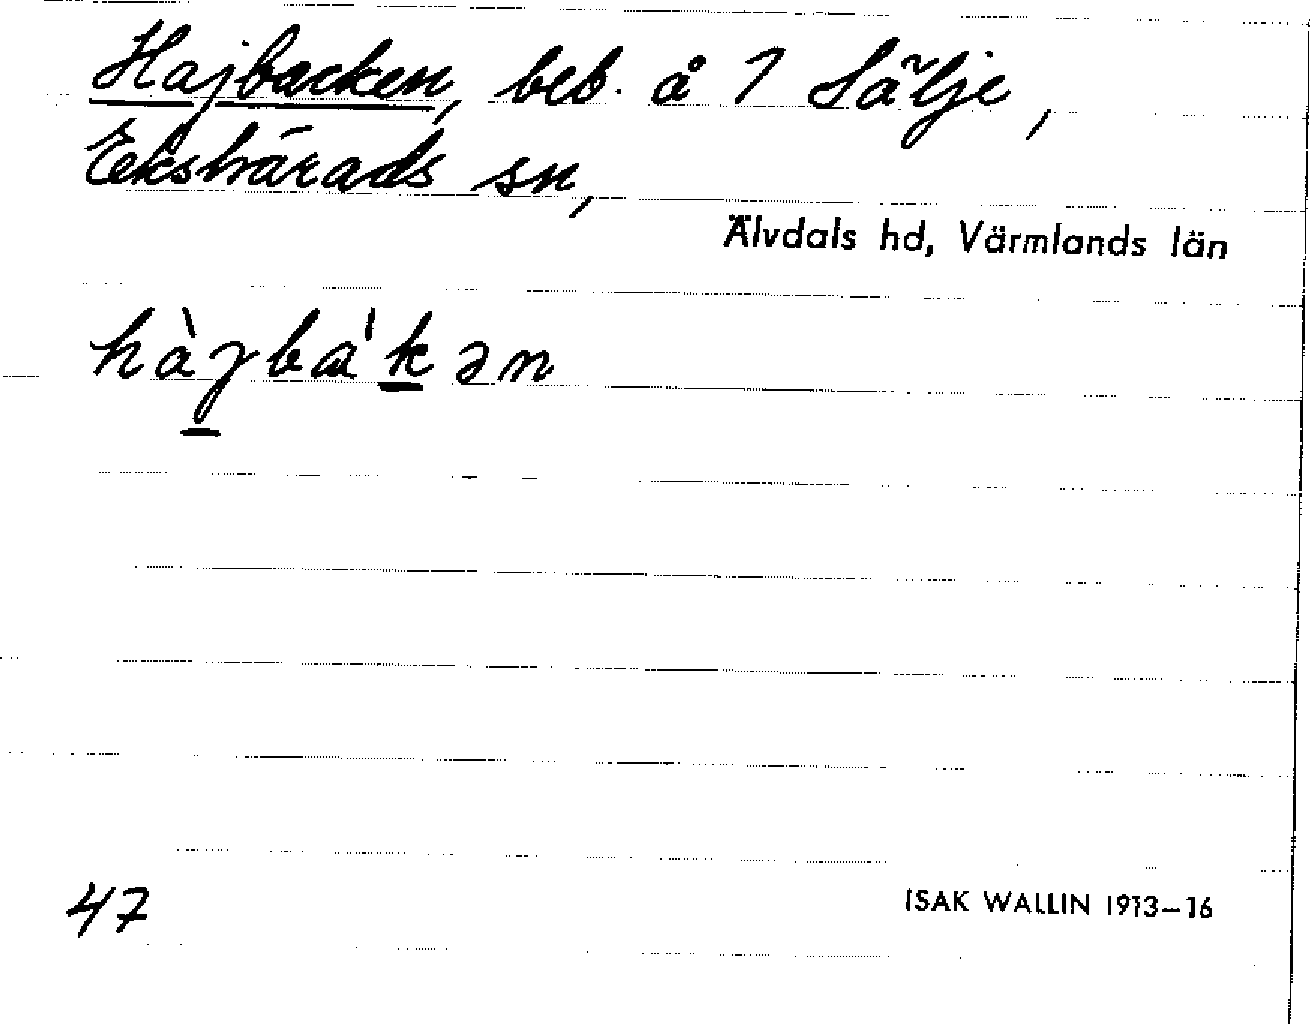 Hajbacken, beb. å 1 Sälje,
Ekshärads sn,
Älvdals hd, Värmlands län
hàjba'kən
47
ISAK WALLIN 1913–16